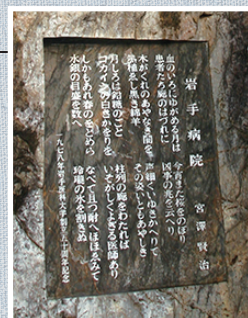 岩手病院
宮澤賢治
血のいろにゆがめる月は 今宵また桜をのぼり
患者たち廊のはづれに 凶事の兆を云へり
木がくれのあやなき闇を 声細くいゆきかへりて
熱植ゑし黒き綿羊 その姿いともあやしき
月しろは鉛糖のごと 柱列の廊をわたれば
コカインの白きかをりを いそがしくよぎる医師あり
しかもあれ春のをとめら なべて且つ耐へほゝゑみて
水銀の目盛を数へ 玲瓏の氷を割きぬ
一九七八年岩手医科大学創立五十周年記念